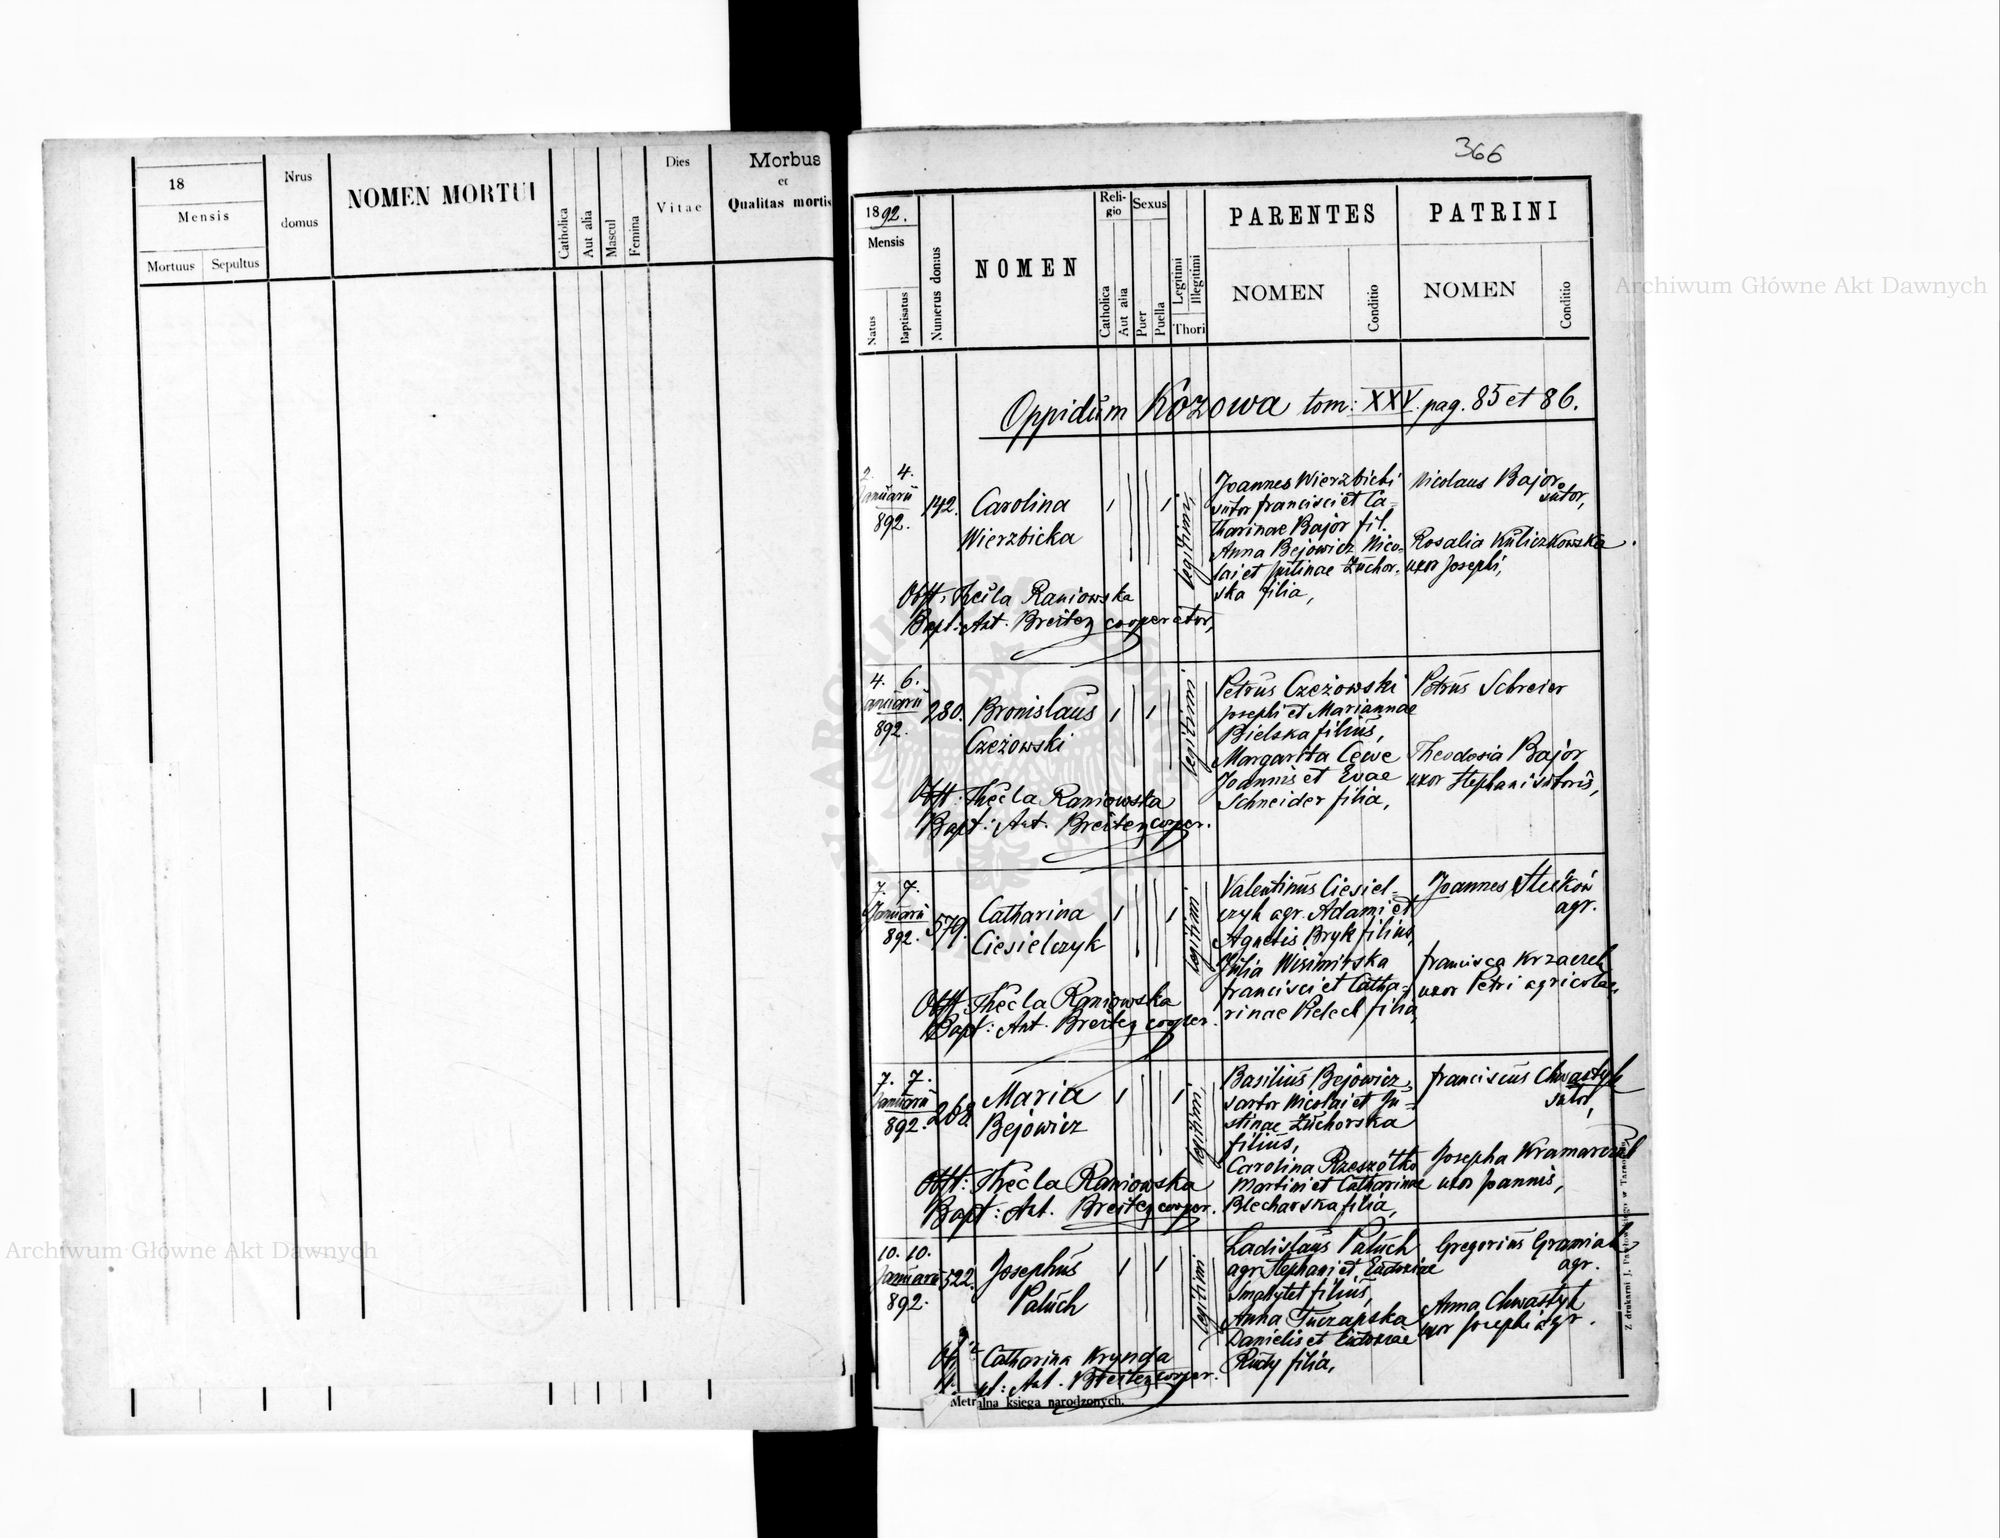 18
Mensis
Mortuus Sepultus
Nrus
domus
NOMEN MORTUI
Catholica
Aut alia
Mascul
Femina
Dies
Vitae
Morbus
et
Qualitas mortis
366
1892.
Mensis
Natus
Baptisatus
Numerus domus
NOMEN
Religio
Catholica
Aut alia
Sexus
Puer
Puella
Legitimi
Illegitimi
Thori
PARENTES
NOMEN
Conditio
PATRINI
NOMEN
Conditio
Oppidum Kozowa tom: XXV. pag. 85 et 86.
2. 4.
Januarii
892.
142.
Carolina
Wierzbicka
legitimi
Joannes Wierzbicki
sutor Francisci et Ca-
tharinae Bajor fil.
Anna Bejowicz Nico-
lai et Justinae Zuchor-
ska filia,
Nicolaus Bajor
sutor,
Rosalia Kuliczkowska
uxor Josephi,
Obst: Thecla Raniowska
Bapt: Ant. Breiter cooperator,
4. 6.
Januarii
892.
280.
Bronislaus
Czeżowski
legitimi
Petrus Czeżowski
Josephi et Mariannae
Bielska filius,
Margarita Cewe
Joannis et Evae
Schneider filia,
Petrus Schreier
Theodosia Bajor
uxor Stephani sutoris,
Obst: Thecla Raniowska
Bapt: Ant. Breiter cooper.
7. 7.
Januarii
892.
579.
Catharina
Ciesielczyk
legitimi
Valentinus Ciesiel-
czyk agr. Adami et
Agnetis Bryk filius,
Julia
Francisci et Catha-
rinae filia,
Joannes
agr.
Francisca
uxor Petri agricolae,
Obst: Thecla Raniowska
Bapt: Ant. Breiter cooper.
7. 7.
Januarii
892.
268.
Maria
Bejowicz
legitimi
Basilius Bejowicz,
sartor Nicolai et Ju-
stinae Zuchorska
filius,
Carolina Rzeszótko
Martini et Catharinae
Blecharska filia,
Franciscus Chwastyk
sutor,
Josepha
uxor Joannis,
Obst: Thecla Raniowska
Bapt: Ant. Breiter cooper.
10. 10.
Januarii
892.
522.
Josephus
Paluch
legitimi
Ladislaus Paluch
agr. Stephani et Eudoxiae
filius,
Anna Tuczapska
Danielis et Eudoxiae
Rudy filia,
Gregorius Graniak
agr.
Anna Chwastyk
uxor Josephi agr.
Catharina Krynda
Ant. Breiter cooper.
Metralna księga narodzonych.
Z drukarni J. Pawłowskiego w Tarnopolu
Archiwum Główne Akt Dawnych
Archiwum Główne Akt Dawnych